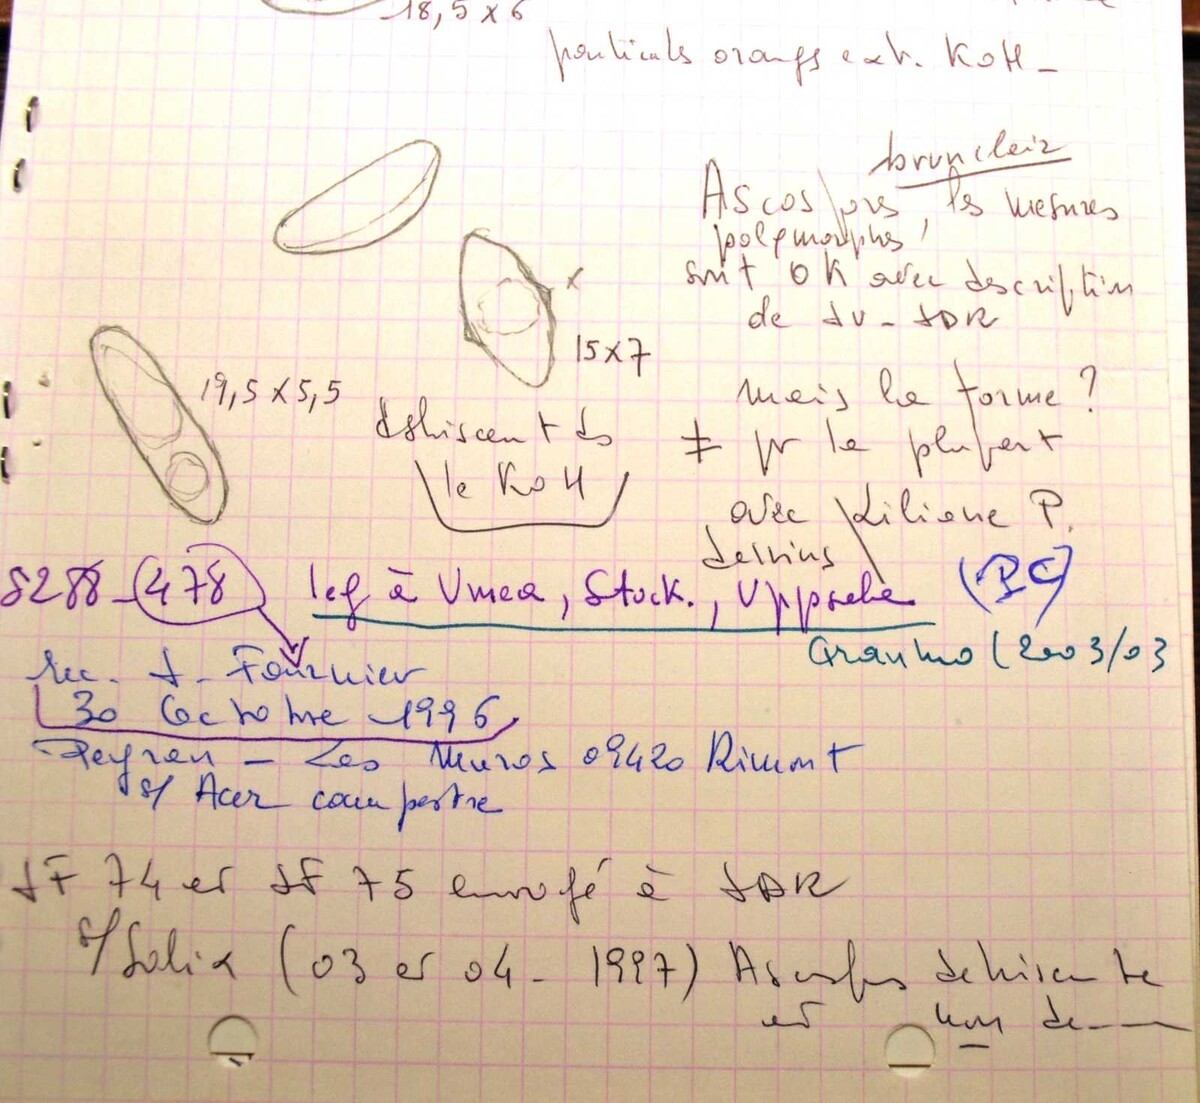 18,5 x 6
orangs ext. KOH -
brun clair
Ascospores, les mesures
polymorphes,
sont OK avec description
de JV - JDR
15x7
19,5 x 5,5
mais la forme ?
déhiscent ds
≠ pr la plupart
le KOH
avec Liliane P.
dessins
478 leg à Umea, Stock., Uppsala
Granmo (2003/03
rec. J. Fournier
30 Octobre 1996
Peyrau - Las Muros 09420 Rimont
s/ Acer campestre
JF 74 et JF 75 envoyé à JDR
s/ Salix (03 et 04 - 1997) Ascospores déhiscente
et non de----